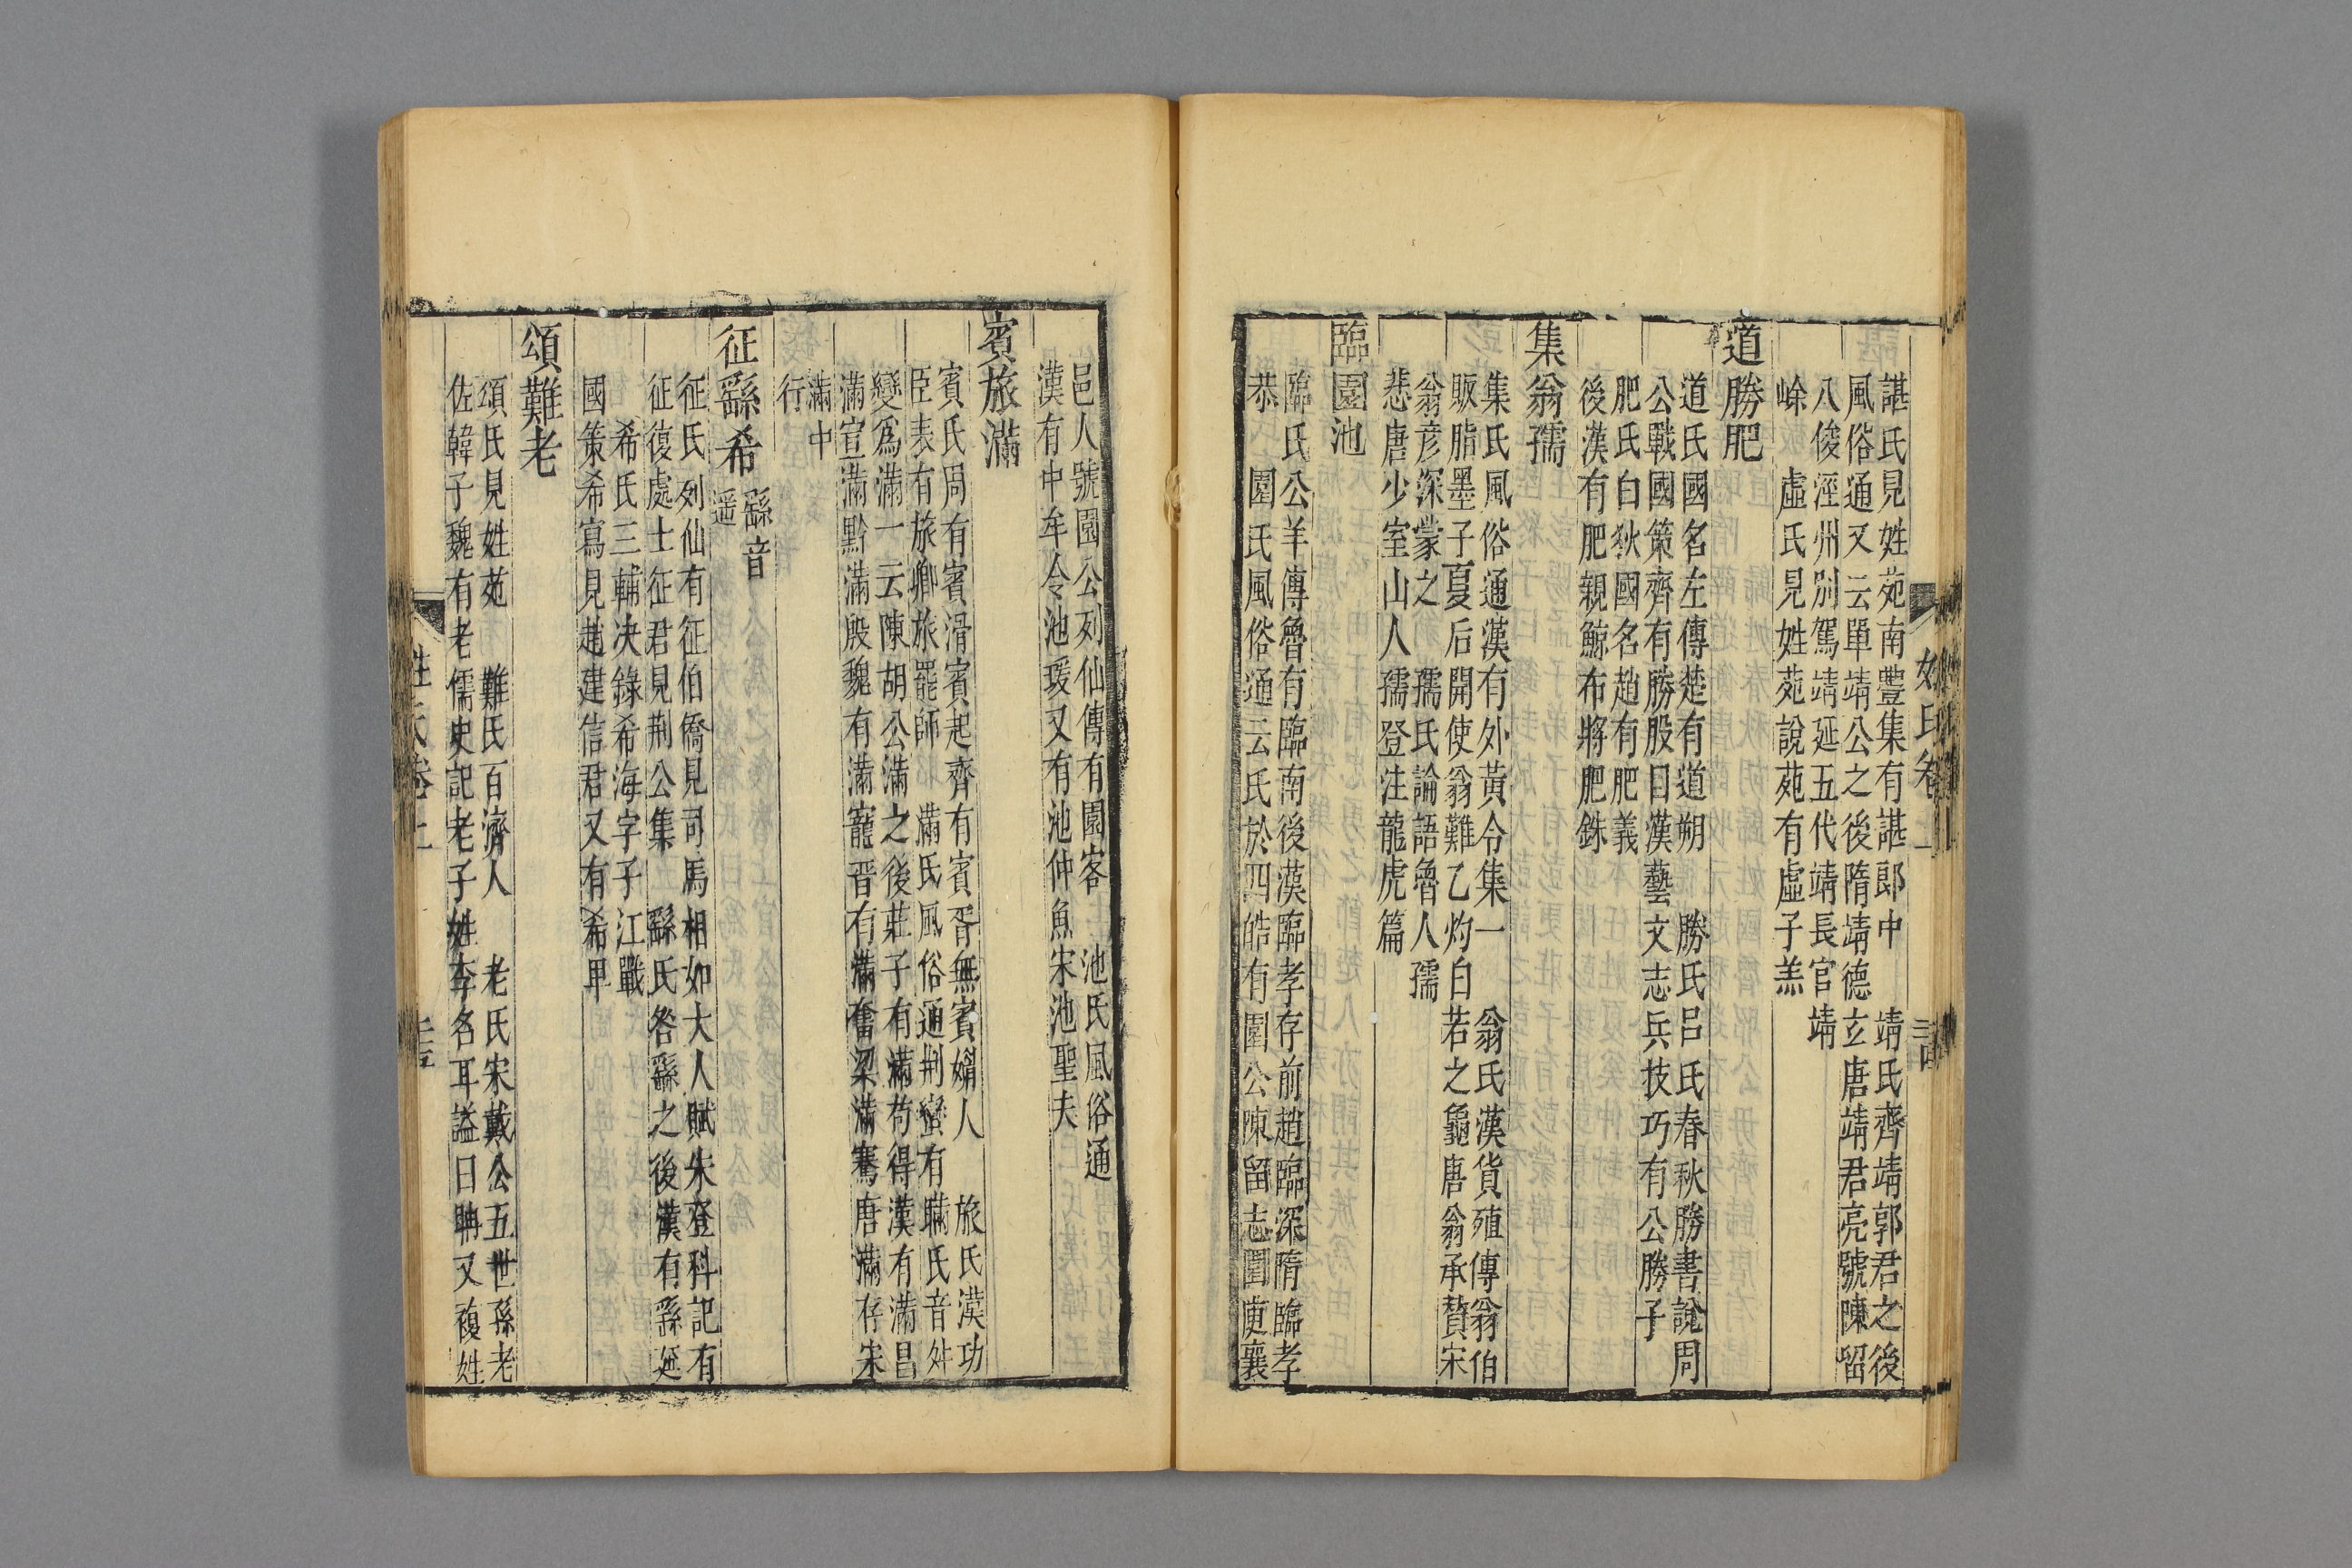 諶氏見姓苑南豐集有諶郎中　靖氏齊靖郭君之後
風俗通又云單靖公之後隋靖德玄唐靖君亮號陳留
八俊涇州別駕靖延五代靖長官靖
嵞　虛氏見姓苑說苑有虛子羔
道勝肥
道氏國名左傳楚有道朔　勝氏呂氏春秋勝書說周
公戰國策齊有勝股日漢藝文志兵技巧有公勝子
肥氏白狄國名趙有肥義
後漢有肥親鯨布將肥銖
集翁孺
集氏風俗通漢有外黃令集一　翁氏漢貨殖傳翁伯
販脂墨子夏后開使翁難乙灼白若之龜唐翁承贊宋
翁彥深蒙之　孺氏論語魯人孺
悲唐少室山人孺登注龍虎篇
臨園池
臨氏公羊傳魯有臨南後漢臨孝存前趙臨深隋臨孝
恭　園氏風俗通云氏於四皓有園公陳留志園庾襄
邑人號園公列仙傳有園客　池氏風俗通
漢有中牟令池瑗又有池仲魚宋池聖夫
賓旅滿
賓氏周有賓滑賓起齊有賓胥無賓媚人　旅氏漢功
臣表有旅卿旅罷師　滿氏風俗通荆蠻有瞞氏音舛
變為滿一云陳胡公滿之後莊子有滿苟得漢有滿昌
滿宣滿黔滿殷魏有滿寵晉有滿奮梁滿騫唐滿存宋
滿中
行
征繇希　繇音
遥
征氏列仙有征伯僑見司馬相如大人賦朱登科記有
征復處士征君見荆公集　繇氏咎繇之後漢有繇延
希氏三輔决錄希海字子江戰
國策希寫見趙建信君又有希甲
頌難老
頌氏見姓苑　難氏百濟人　老氏宋戴公五世孫老
佐韓子魏有老儒史記老子姓李名耳謚曰聃又複姓